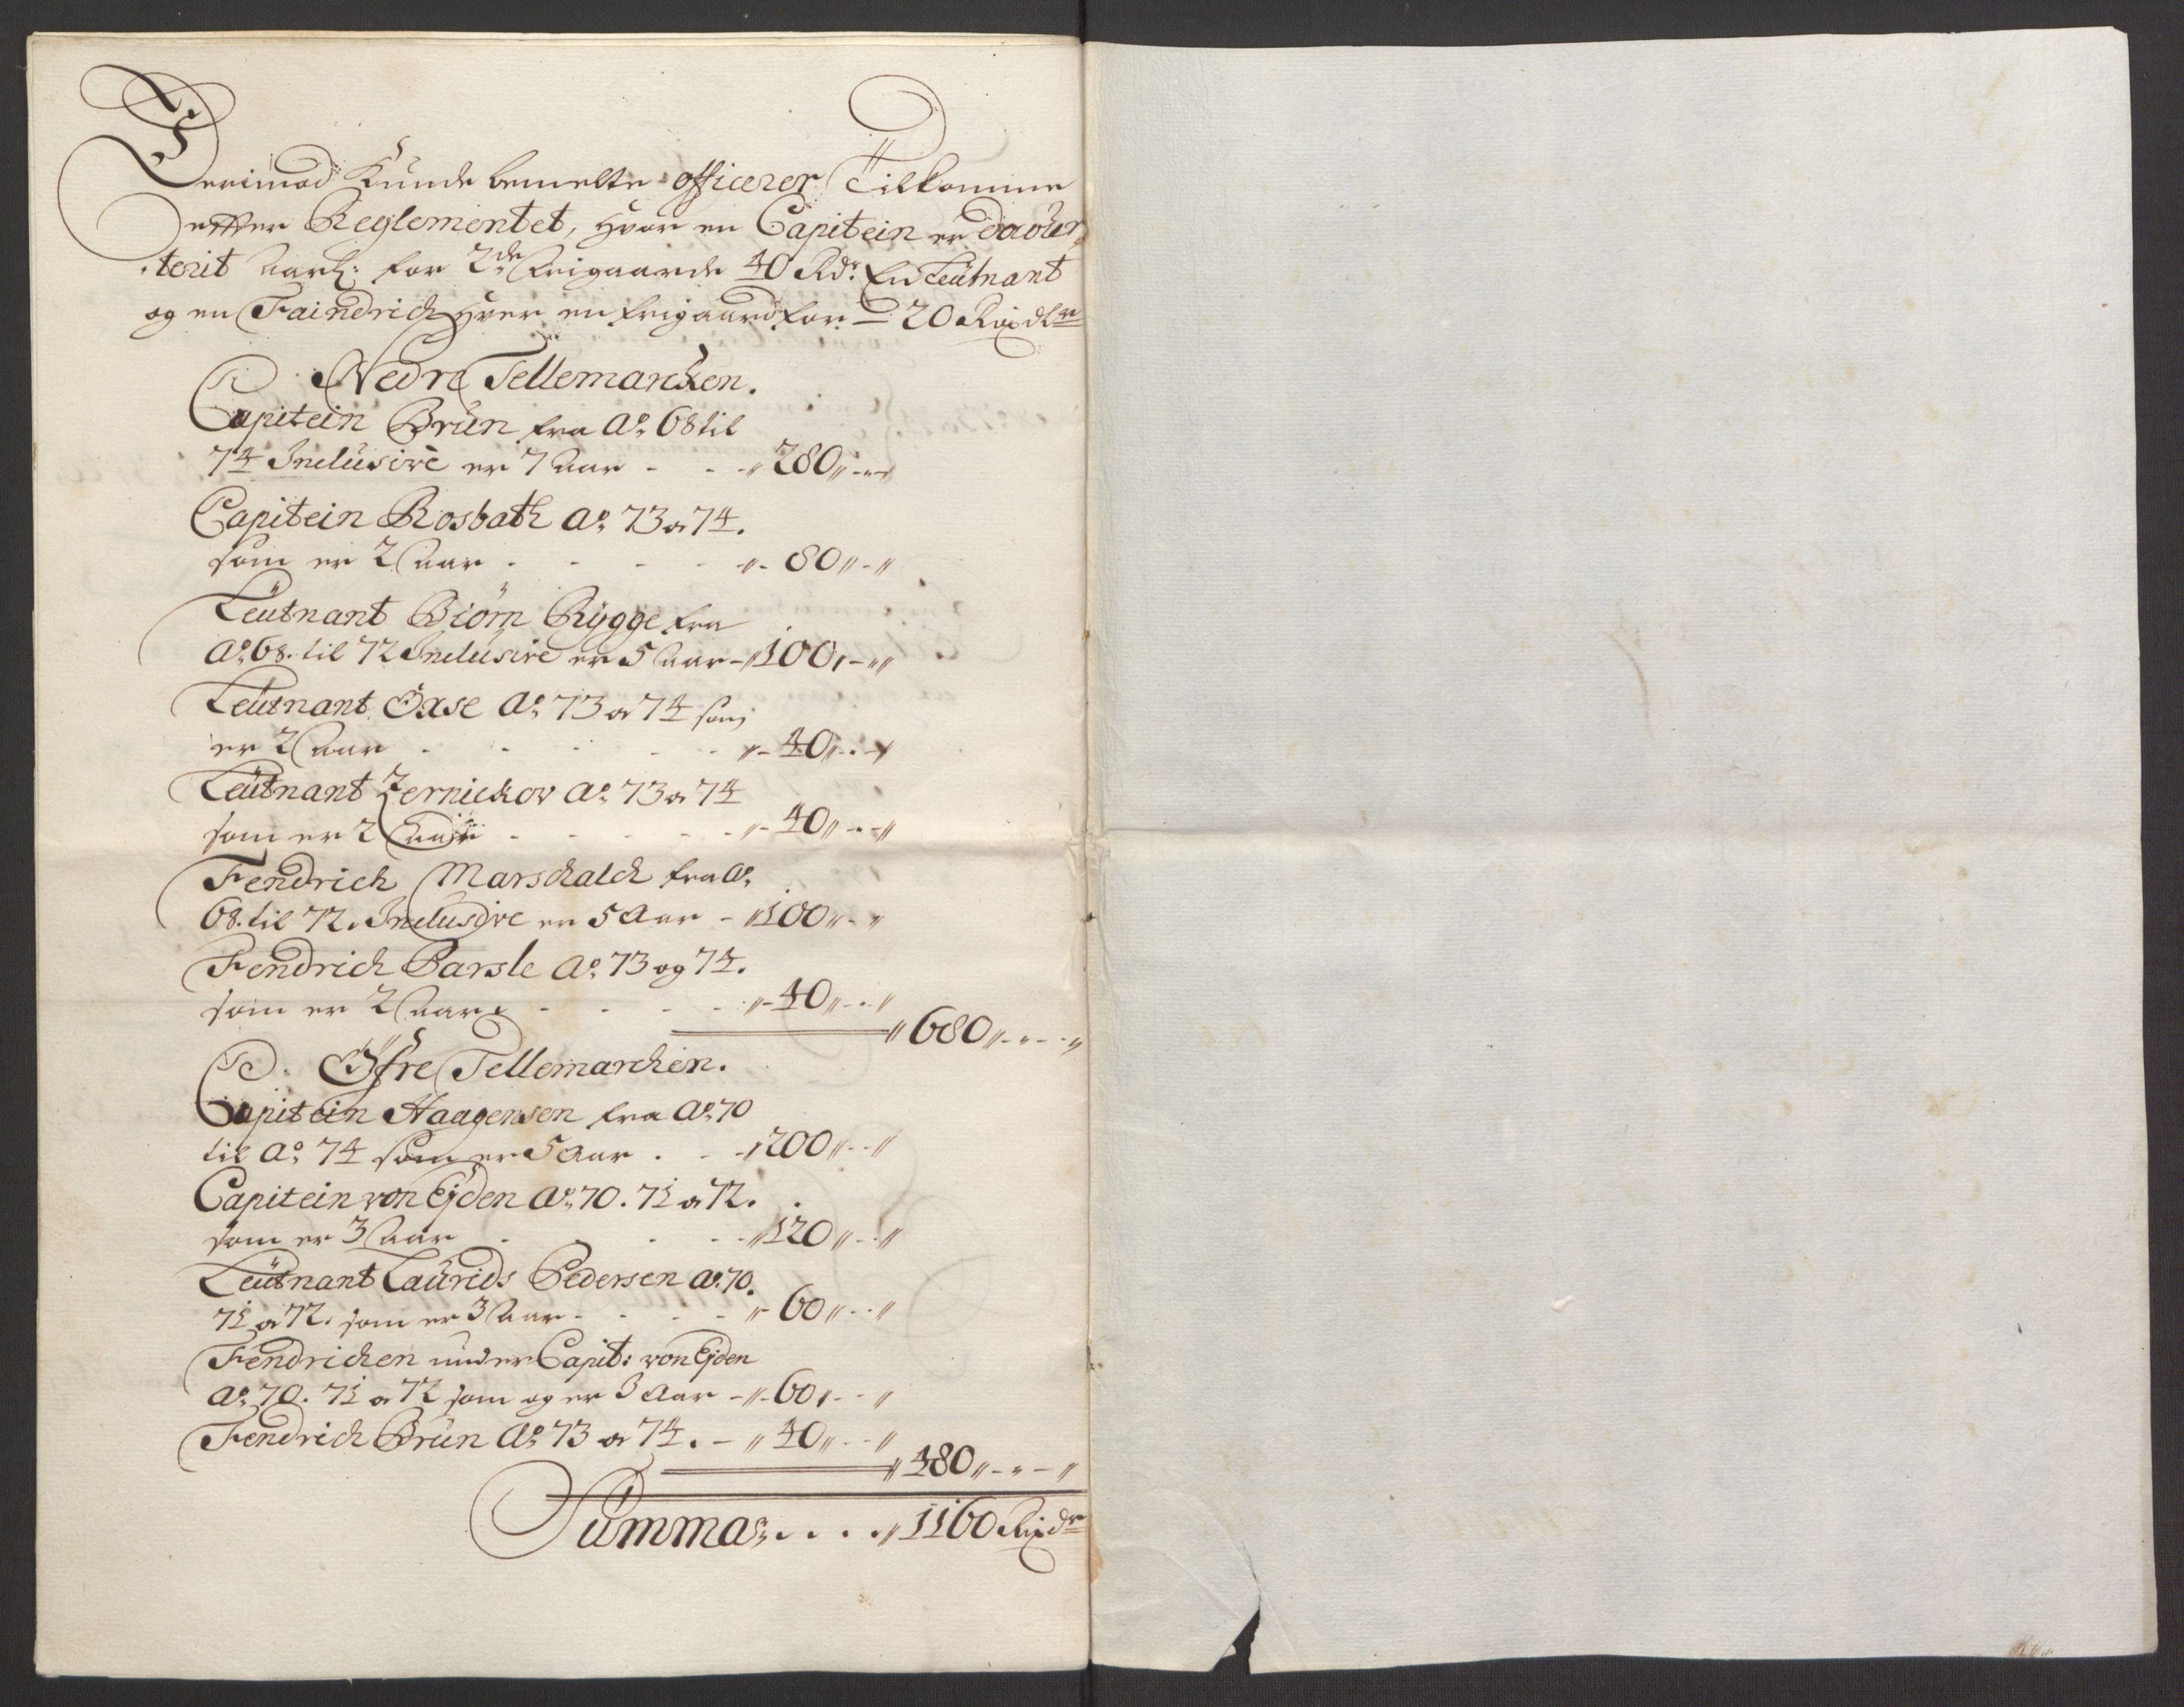 Derimod Kunde bemelte officerer Tilkomme
effter Reglementet, hvor en Capitein er
terit Aarl: for 2de frigaarde 40 Rdr. En Leütnant
og en Faindrich hver en frigaard for – 20 Rixdlr
Nedre Tellemarchen.
Capitein Brün fra Ao. 68 til
74 Inclusive er 7 Aar - - - 280 -
Capitein Rosbach Ao. 73 o 74.
som er 2 Aar - - - - 80 -
Leutnant Biörn Rÿgge fra
Ao. 68. til 72 Inclusive er 5 Aar - 100 -
Leütnant Oxse Ao. 73 o 74 som
er 2 Aar - - - - 40 -
Leütnant Zernickov Ao. 73 o 74
som er 2 Aar - - - - 40 -
Fendrich Marschalch fra Ao.
68. til 72. Inclusive er 5 Aar - 100 -
Fendrich Barsle Ao. 73 og 74.
som er 2 Aar - - - - 40 -
680 - - -
Öfre Tellemarchen.
Capitein Haagensen fra Ao. 70
til Ao. 74 som er 5 Aar . - - 200 -
Capitein von Ejden Ao. 70. 71 o 72.
som er 3 Aar - - - - 120 -
Leütnant Laürids Pedersen Ao. 70.
71 o 72. som er 3 Aar - - - - 60 -
Fendrichen under Capit: von Ejden
Ao. 70. 71 o 72 som og er 3 Aar - 60 -
Fendrich Brün Ao. 73 o 74. – 40 -
480 - - -
Summa . . . . 1160 Rixdr